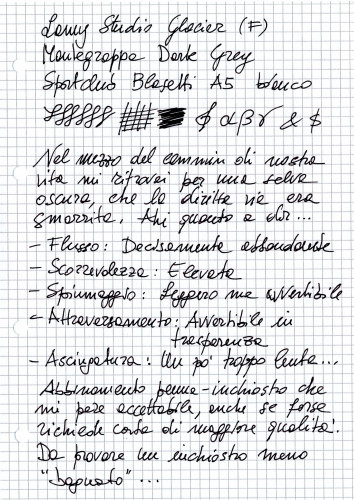 Lamy Studio Glacier (F)
Montegrappa Dark Grey
Sportclub Blasetti A5 bianco
∮ α β γ & $
Nel mezzo del cammin di nostra
vita mi ritrovai per una selva
oscura, che la diritta via era
smarrita. Ahi quanto a dir...
- Flusso: Decisamente abbondante
- Scorrevolezza: Elevata
- Spiumaggio: Leggero ma avvertibile
- Attraversamento: Avvertibile in
trasparenza
- Asciugatura: Un po' troppo lenta...
Abbinamento penna-inchiostro che
mi pare accettabile, anche se forse
richiede carta di maggiore qualità.
Da provare un inchiostro meno
"bagnato"...